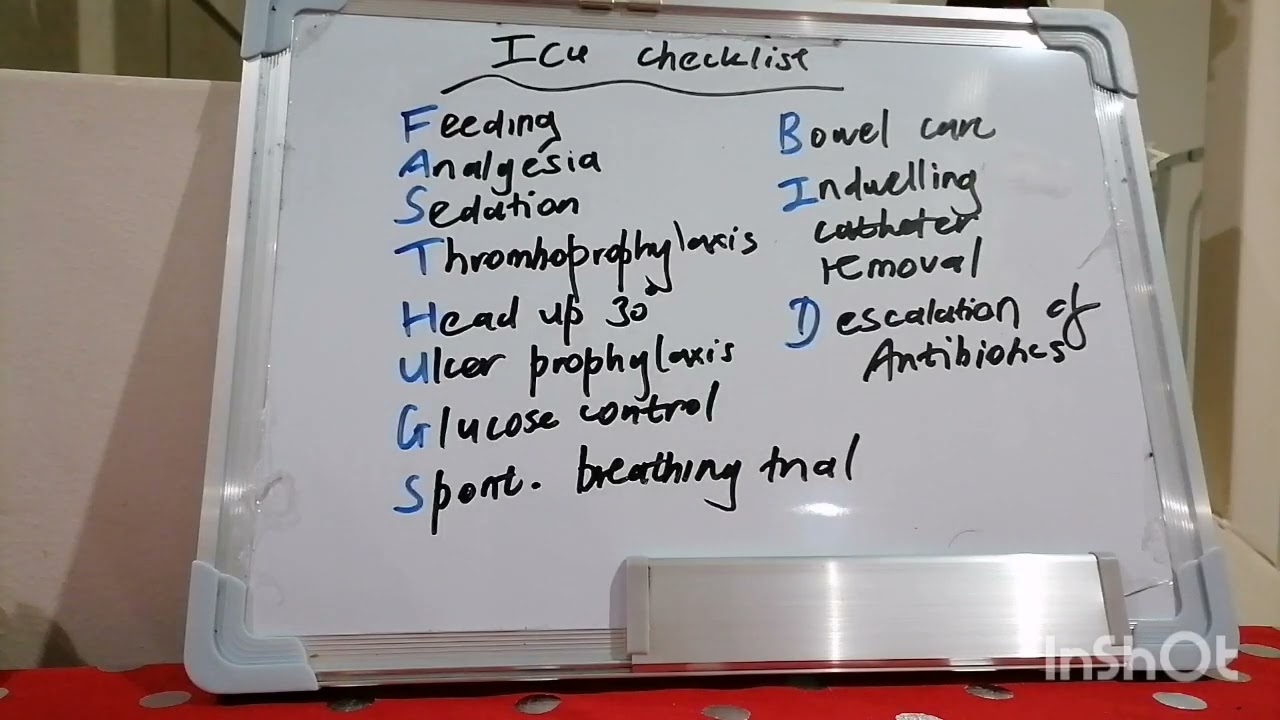 ICU checklist
Feeding
Analgesia
Sedation
Thromboprophylaxis
Head up 30°
Ulcer prophylaxis
Glucose control
Spont. breathing trial
Bowel care
Indwelling
catheter
removal
Descalation of
Antibiotics
InShOt